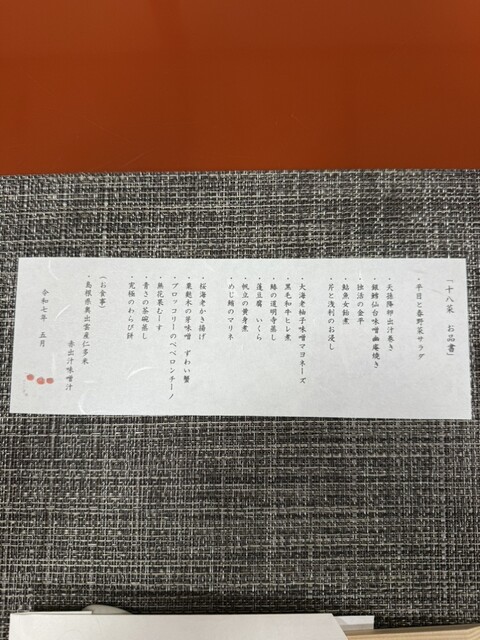 「十八菜　お品書」
・平目と春野菜サラダ
・天孫降卵出汁巻き
・銀鱈仙台味噌幽庵焼き
・独活の金平
・鮎魚女飴煮
・芹と浅利のお浸し
大海老柚子味噌マヨネーズ
・黒毛和牛ヒレ煮
・鰆の道明寺蒸し
・蓬豆腐　いくら
・帆立の黄身煮
・めじ鮪のマリネ
桜海老かき揚げ
・菓麩木の芽味噌　ずわい蟹
・ブロッコリーのペペロンチーノ
・無花果むーす
・青さの茶碗蒸し
・究極のわらび餅
（お食事）
・島根県奥出雲産仁多米
赤出汁味噌汁
令和七年　五月